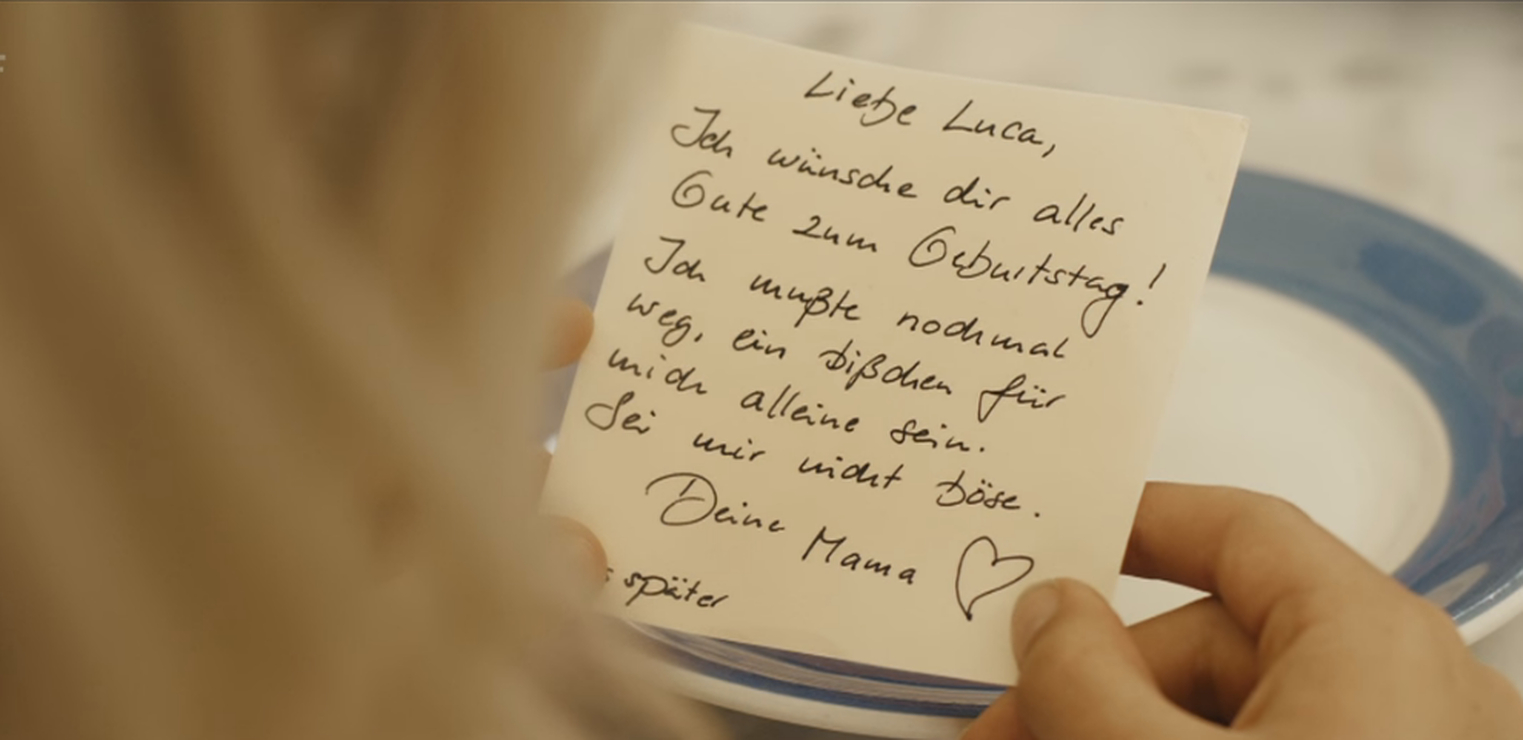 Liebe Luca,
Ich wünsche dir alles
Gute zum Geburtstag!
Ich mußte nochmal
weg, ein bißchen für
mich alleine sein.
Sei mir nicht böse.
Deine Mama
später